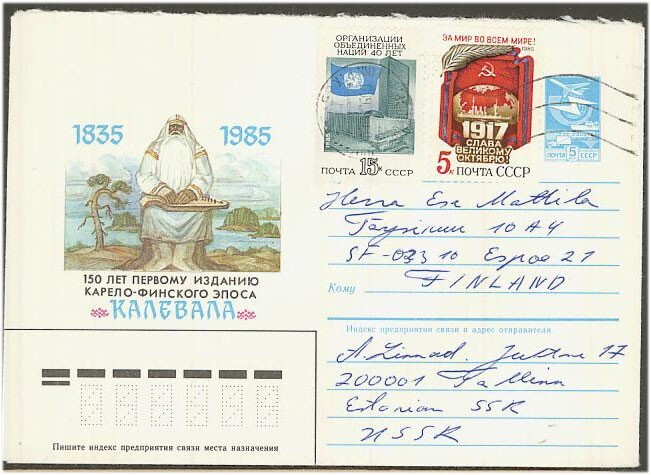 1835 1985
150 ЛЕТ ПЕРВОМУ ИЗДАНИЮ
КАРЕЛО-ФИНСКОГО ЭПОСА
КАЛЕВАЛА
Пишите индекс предприятия связи места назначения
ОРГАНИЗАЦИИ
ОБЪЕДИНЕННЫХ
НАЦИЙ 40 ЛЕТ
ПОЧТА 15к СССР
ЗА МИР ВО ВСЕМ МИРЕ!
1985
1917
СЛАВА
ВЕЛИКОМУ
ОКТЯБРЮ!
5к ПОЧТА СССР
ПОЧТА 5 СССР
Herra Esa Mattila
10 A4
SF-02310 Espoo 21
Кому FINLAND
Индекс предприятия связи и адрес отправителя
A. 17
200001 Tallinn
Estonian SSR
USSR